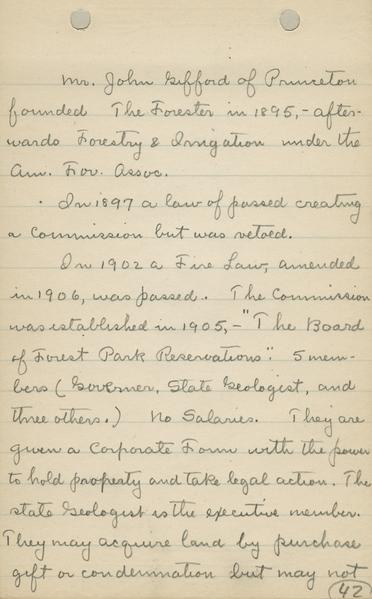 Mr. John Gifford of Princeton
founded The Forester in 1895, - after-
wards Forestry & Irrigation under the
Am. For. Assoc.
In 1897 a law of passed creating
a commission but was vetoed.
In 1902 a Fire Law, amended
in 1906, was passed. The Commission
was established in 1905, - "The Board
of Forest Park Reservations". 5 mem-
bers (Governer, State Geologist, and
three others.) No Salaries. They are
given a Corporate Form with the power
to hold property and take legal action. The
state Geologist is the executive member.
They may acquire land by purchase
gift or condemnation but may not
42